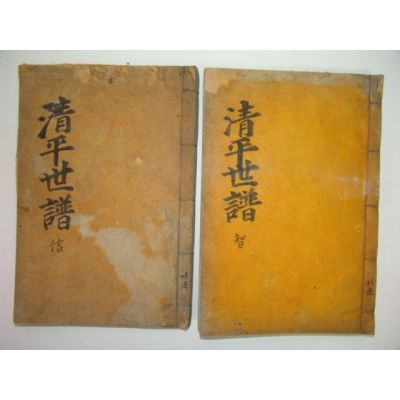 清平世譜
信
清平世譜
智